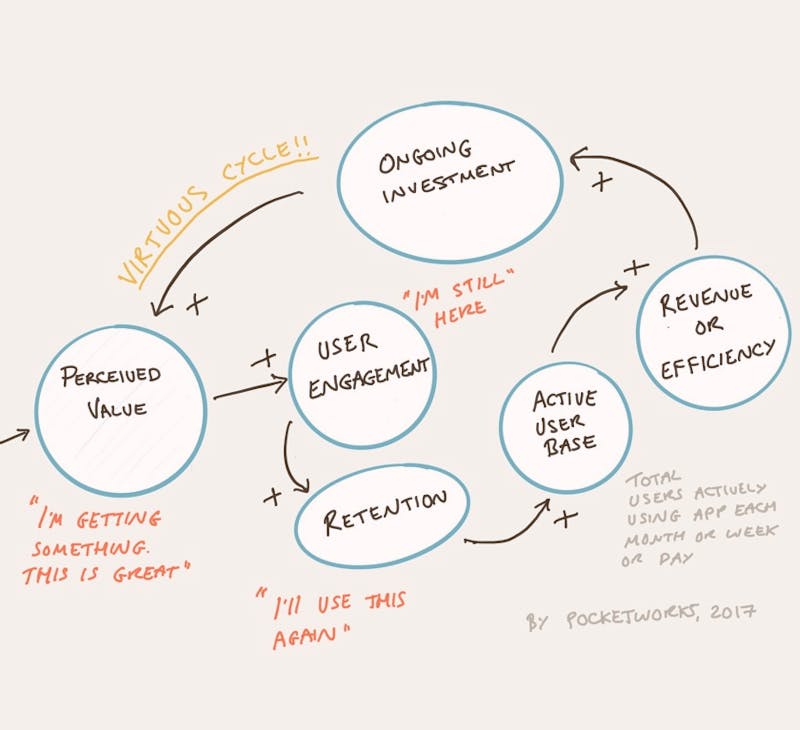 VIRTUOUS CYCLE!!
ONGOING
INVESTMENT
+
+
"I'M STILL"
HERE
PERCEIVED
VALUE
+
USER
ENGAGEMENT
+
REVENUE
OR
EFFICIENCY
ACTIVE
USER
BASE
+
RETENTION
+
"I'M GETTING
SOMETHING.
THIS IS GREAT"
"I'll USE THIS
AGAIN"
TOTAL
USERS ACTIVELY
USING APP EACH
MONTH OR WEEK
OR DAY
BY POCKETWORKS, 2017